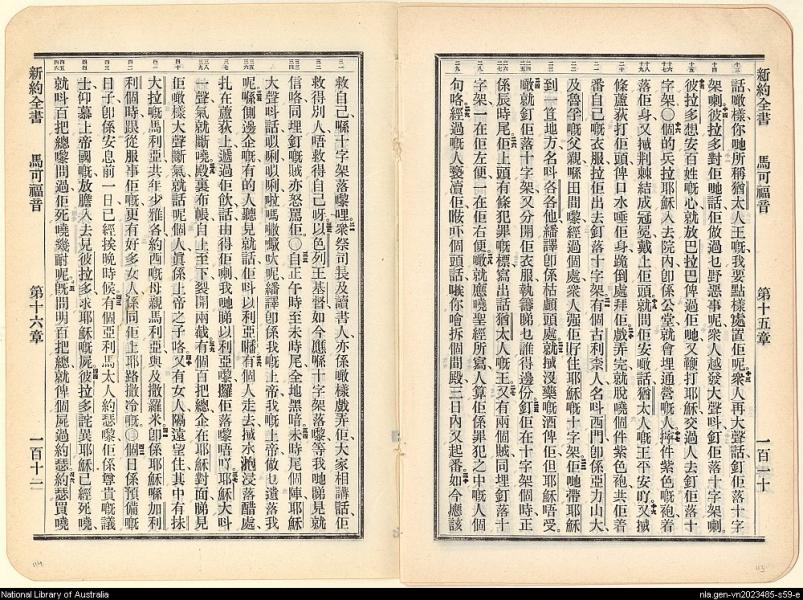 新約全書 馬可福音 第十五章 一百一十
話噉樣你哋所稱猶太人王嘅我要點樣處置佢呢衆人再大聲話釘佢落十字
架喇彼拉多對佢哋話佢做過乜野惡事呢衆人越發大聲呌釘佢落十字架喇
彼拉多想安百姓嘅心就放巴拉巴俾過佢哋又鞭打耶穌交過人去釘佢落十
字架〇個的兵拉耶穌入去院內卽係公堂就會埋通營嘅人擰件紫色嘅袍着
落佢身又搣荆棘結成冠冕戴上佢頭就問佢安噉話猶太人嘅王平安吖又搣
條蘆荻打佢頭俾口水唾佢身跪倒處拜佢戲弄完就脫嘵個件紫色袍共佢着
番自己嘅衣服拉佢出去釘落十字架有個古利柰人名呌西門卽係亞力山大
及魯孚嘅父親喺田間嚟經過個處衆人强佢孖住耶穌嘅十字架佢哋帶耶穌
到一笪地方名呌各各他繙譯卽係枯顱頭處就搣沒藥嘅酒俾佢但耶穌唔受
噉就釘佢落十字架又分開佢衣服執籌睇乜誰得邊份釘佢在十字架個時正
係辰時尾佢上頭有條犯罪嘅標寫出話猶太人嘅王又有兩個賊同埋釘落十
字架一在佢左便一在佢右便噉就應嘵聖經所寫人算佢係罪犯之中嘅人個
句咯經過嘅人褻瀆佢㩒吓個頭話嗾你噲拆個間殿三日內又起番如今應該
救自己喺十字架落嚟哩衆祭司長及讀書人亦係噉樣戲弄佢大家相講話佢
救得別人唔救得自己呀以色列王基督如今應喺十字架落嚟等我哋睇見就
信咯同埋釘嘅賊亦怒罵佢〇自正午時至未時尾全地黑暗未時尾個陣耶穌
大聲呌話㕸唎㕸唎啦嗎撒嘅呔呢繙譯卽係我嘅上帝我嘅上帝做乜遺落我
呢喺側邊企嘅有的人聽見就話佢呌以利亞嚟有個人走去搣水泡浸落醋處
扎在蘆荻上遞過佢飲話由得佢喇我哋睇以利亞嚟攞佢落嚟唔吖耶穌大呌
一聲氣就斷嘵殿裏布帳自上至下裂開兩截有個百把總企在耶穌對面睇見
佢噉樣大聲斷氣就話呢個人眞係上帝之子咯又有女人隔遠望住其中有抹
大拉嘅馬利亞共年少雅各約西嘅母親馬利亞與及撒羅米卽係耶穌喺加利
利個時跟從服事佢嘅更有好多女人係同佢上耶路撒冷嘅〇個日係預備嘅
日子卽係安息前一日已經挨晚時候有個亞利馬太人約瑟嚟佢係尊貴嘅議
士仰慕上帝國嘅放膽入去見彼拉多求耶穌嘅屍彼拉多詫異耶穌已經死嘵
就呌百把總嚟問過佢死嘵幾耐呢旣問明百把總就俾個屍過約瑟約瑟買嘵
新約全書 馬可福音 第十六章 一百十二
National Library of Australia
nla.gen-vn2023485-s59-e